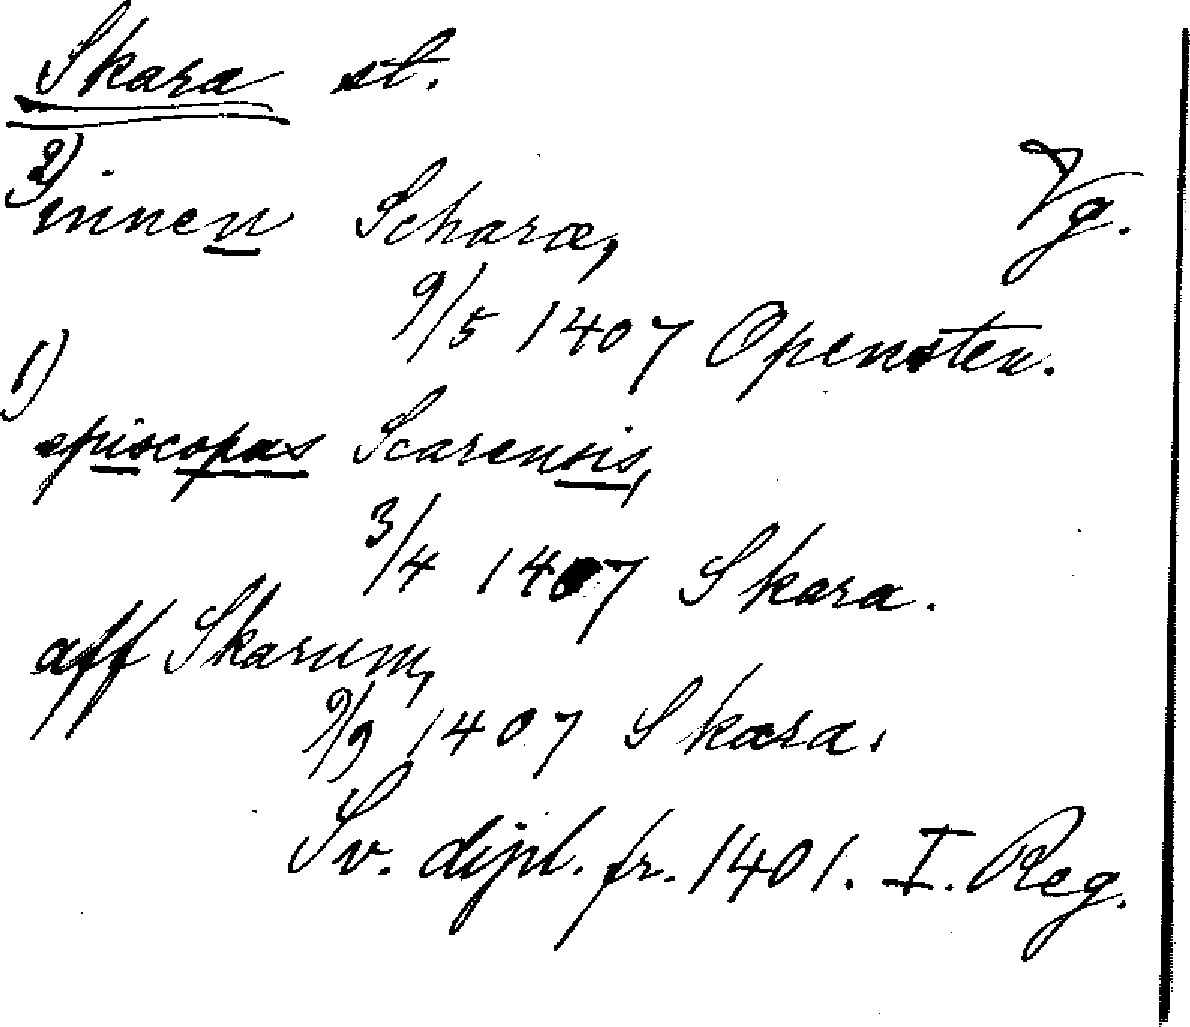 Skara st.
2)
innen Scharæ, Vg.
9/5 1407 Opensten.
1)
episcopus Scarensis,
3/4 1407 Skara.
aff Skarum,
9/9 1407 Skara.
Sv. dipl. fr. 1401. I. Reg.